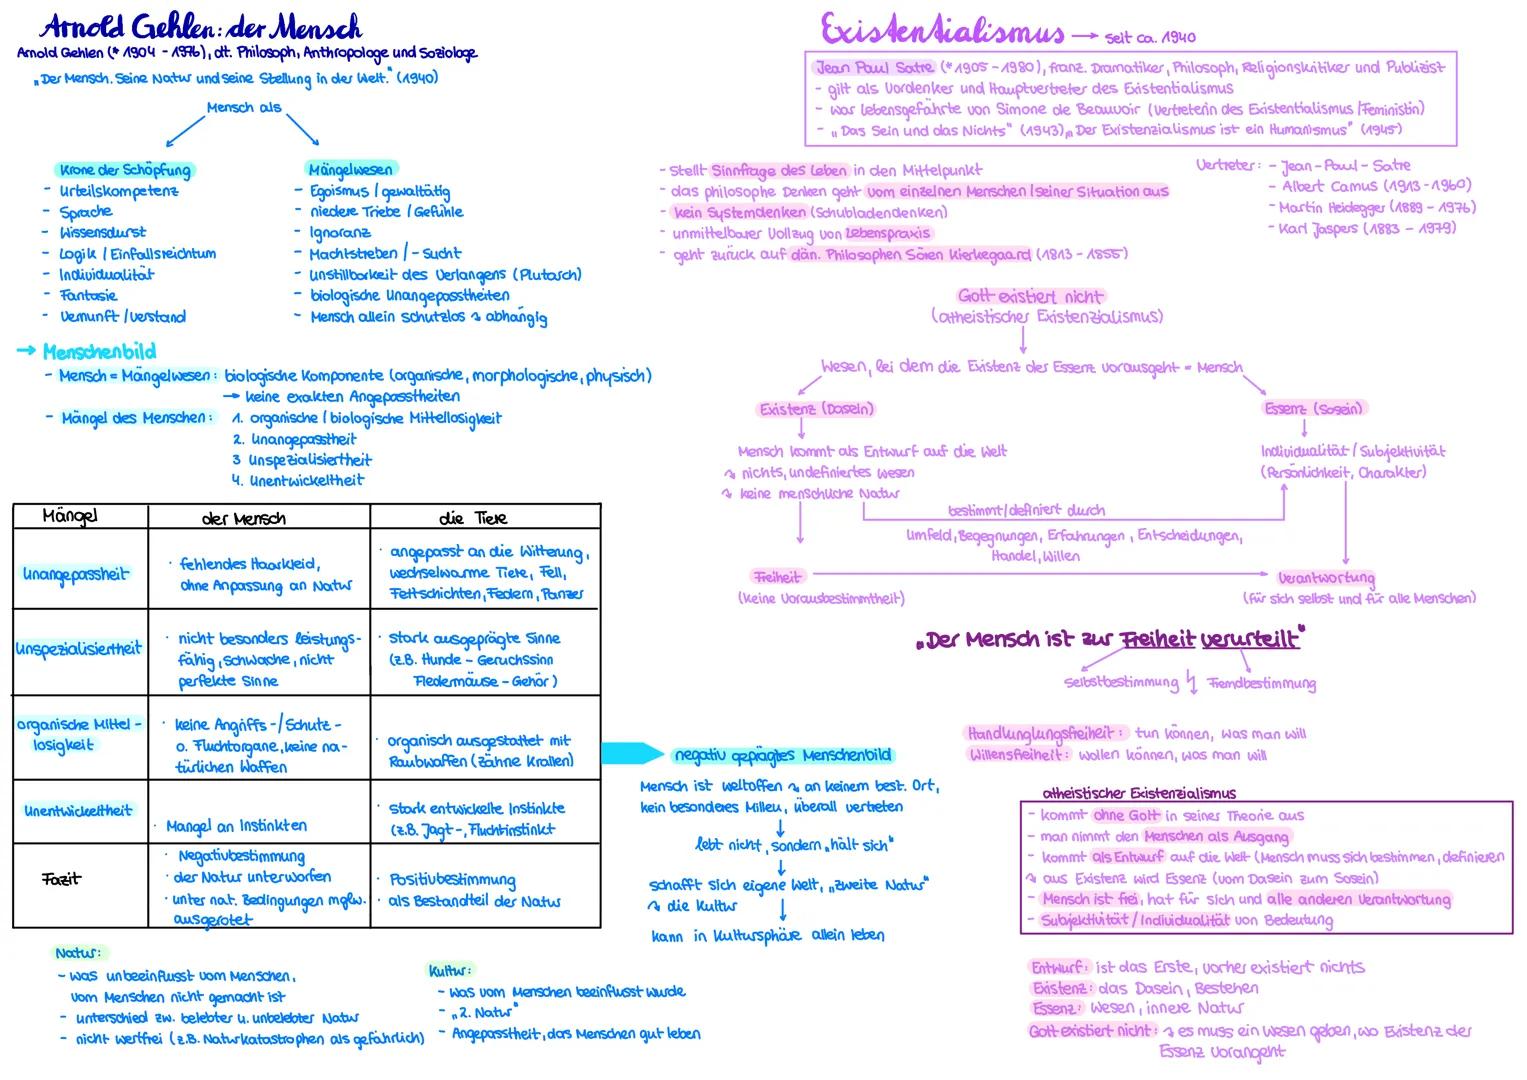 Arnold Gehlen: der Mensch
Arnold Gehlen (* 1904 - 1976), dt. Philosoph, Anthropologe und Soziologe
„Der Mensch. Seine Natur und seine Stellung in der Welt." (1940)
Mensch als
Krone der Schöpfung
- Urteilskompetenz
- Sprache
- Wissensdurst
- Logik / Einfallsreichtum
- Individualität
- Fantasie
- Vernunft / Verstand
Mängelwesen
- Egoismus / gewaltätig
- niedere Triebe / Gefühle
- Ignoranz
- Machtstreben / - Sucht
- unstillbarkeit des Verlangens (Plutarch)
- biologische Unangepasstheiten
- Mensch allein schutzlos ↝ abhängig
→ Menschenbild
- Mensch = Mängelwesen: biologische Komponente (organische, morphologische, physisch)
→ keine exakten Angepasstheiten
- Mängel des Menschen: 1. organische / biologische Mittellosigkeit
2. Unangepasstheit
3 Unspezialisiertheit
4. Unentwickeltheit
Mängel
der Mensch
die Tiere
Unangepassheit
· fehlendes Haarkleid,
ohne Anpassung an Natur
· angepasst an die Witterung,
wechselwarme Tiere, Fell,
Fettschichten, Federn, Panzer
Unspezialisiertheit
· nicht besonders leistungs-
fähig, schwache, nicht
perfekte Sinne
· stark ausgeprägte Sinne
(z.B. Hunde - Geruchssinn
Fledermäuse - Gehör)
organische Mittel-
losigkeit
· keine Angriffs-/Schutz-
o. Fluchtorgane, keine na-
türlichen Waffen
· organisch ausgestattet mit
Raubwaffen (Zähne Krallen)
Unentwickeltheit
· Mangel an Instinkten
· Stark entwickelte Instinkte
(z.B. Jagt-, Fluchtinstinkt
Fazit
· Negativbestimmung
· der Natur unterworfen
· unter nat. Bedingungen mglw.
ausgerotet
· Positivbestimmung
· als Bestandteil der Natur
negativ geprägtes Menschenbild
Mensch ist weltoffen ↝ an keinem best. Ort,
kein besonderes Milieu, überall vertreten
lebt nicht, sondern „hält sich"
schafft sich eigene Welt, „zweite Natur"
↝ die Kultur
kann in Kultursphäre allein leben
Natur:
- was unbeeinflusst vom Menschen,
vom Menschen nicht gemacht ist
- unterschied zw. belebter u. unbelebter Natur
- nicht wertfrei (z.B. Naturkatastrophen als gefährlich)
Kultur:
- was vom Menschen beeinflusst wurde
- „2. Natur"
- Angepasstheit, das Menschen gut leben
Existentialismus → seit ca. 1940
Jean Paul Satre (* 1905 - 1980), franz. Dramatiker, Philosoph, Religionskritiker und Publizist
- gilt als Vordenker und Hauptvertreter des Existentialismus
- war Lebensgefährte von Simone de Beauvoir (Vertreterin des Existentialismus / Feministin)
- „Das Sein und das Nichts" (1943), „Der Existenzialismus ist ein Humanismus" (1945)
- stellt Sinnfrage des Leben in den Mittelpunkt
- das philosophe Denken geht vom einzelnen Menschen / seiner Situation aus
- kein Systemdenken (Schubladendenken)
- unmittelbarer Vollzug von Lebenspraxis
- geht zurück auf dän. Philosophen Sören Kierkegaard (1813 - 1855)
Vertreter: - Jean-Paul-Satre
- Albert Camus (1913-1960)
- Martin Heidegger (1889 - 1976)
- Karl Jaspers (1883 - 1979)
Gott existiert nicht
(atheistischer Existenzialismus)
Wesen, bei dem die Existenz der Essenz vorausgeht = Mensch
Existenz (Dasein)
Essenz (Sosein)
Mensch kommt als Entwurf auf die Welt
↝ nichts, undefiniertes Wesen
↝ keine menschliche Natur
Individualität / Subjektivität
(Persönlichkeit, Charakter)
bestimmt/definiert durch
Umfeld, Begegnungen, Erfahrungen, Entscheidungen,
Handel, Willen
Freiheit
(keine Vorausbestimmtheit)
Verantwortung
(für sich selbst und für alle Menschen)
„Der Mensch ist zur Freiheit verurteilt"
Selbstbestimmung ↯ Fremdbestimmung
Handlunglungsfreiheit: tun können, was man will
Willensfreiheit: wollen können, was man will
atheistischer Existenzialismus
- kommt ohne Gott in seiner Theorie aus
- man nimmt den Menschen als Ausgang
- kommt als Entwurf auf die Welt (Mensch muss sich bestimmen, definieren
↝ aus Existenz wird Essenz (vom Dasein zum Sosein)
- Mensch ist frei, hat für sich und alle anderen Verantwortung
- Subjektivität / Individualität von Bedeutung
Entwurf: ist das Erste, vorher existiert nichts
Existenz: das Dasein, Bestehen
Essenz: Wesen, innere Natur
Gott existiert nicht: ↝ es muss ein Wesen geben, wo Existenz der
Essenz vorangeht